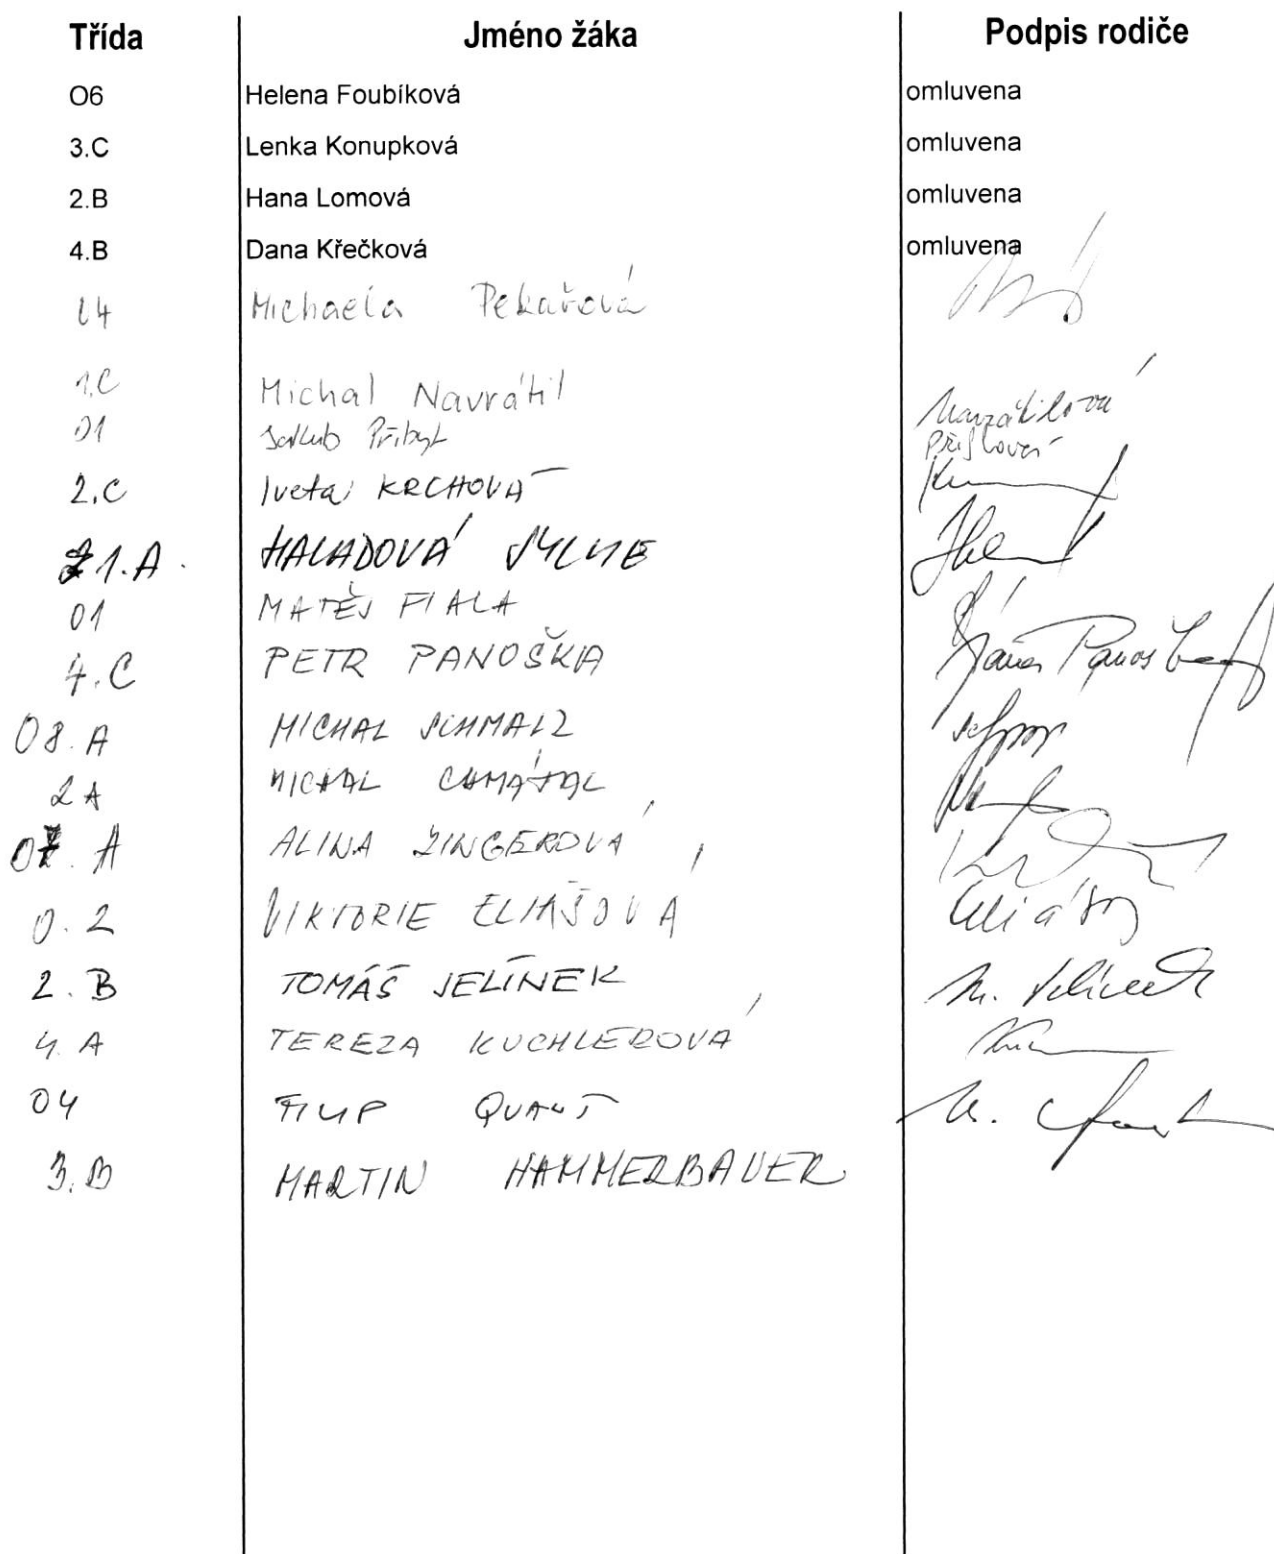 Třída Jméno žáka Podpis rodiče
O6 Helena Foubíková omluvena
3.C Lenka Konupková omluvena
2.B Hana Lomová omluvena
4.B Dana Křečková omluvena
Michaela Pekařová
1.C Michal Navrátil Navrátilová
O1 Jakub Přibyl Přibylová
2.C Iveta KRCHOVÁ
1.A. HALADOVÁ
O1 MATĚJ FIALA
4.C PETR PANOŠKA
O8.A MICHAL SCHMALZ
2A MICHAL CHMÁTAL
O7.A ALINA ZINGEROVÁ
O.2 VIKTORIE ELIÁŠOVÁ
2.B TOMÁŠ JELÍNEK
4.A TEREZA KUCHLEROVÁ
O4 FILIP QUAST
3.B MARTIN HAMMERBAUER